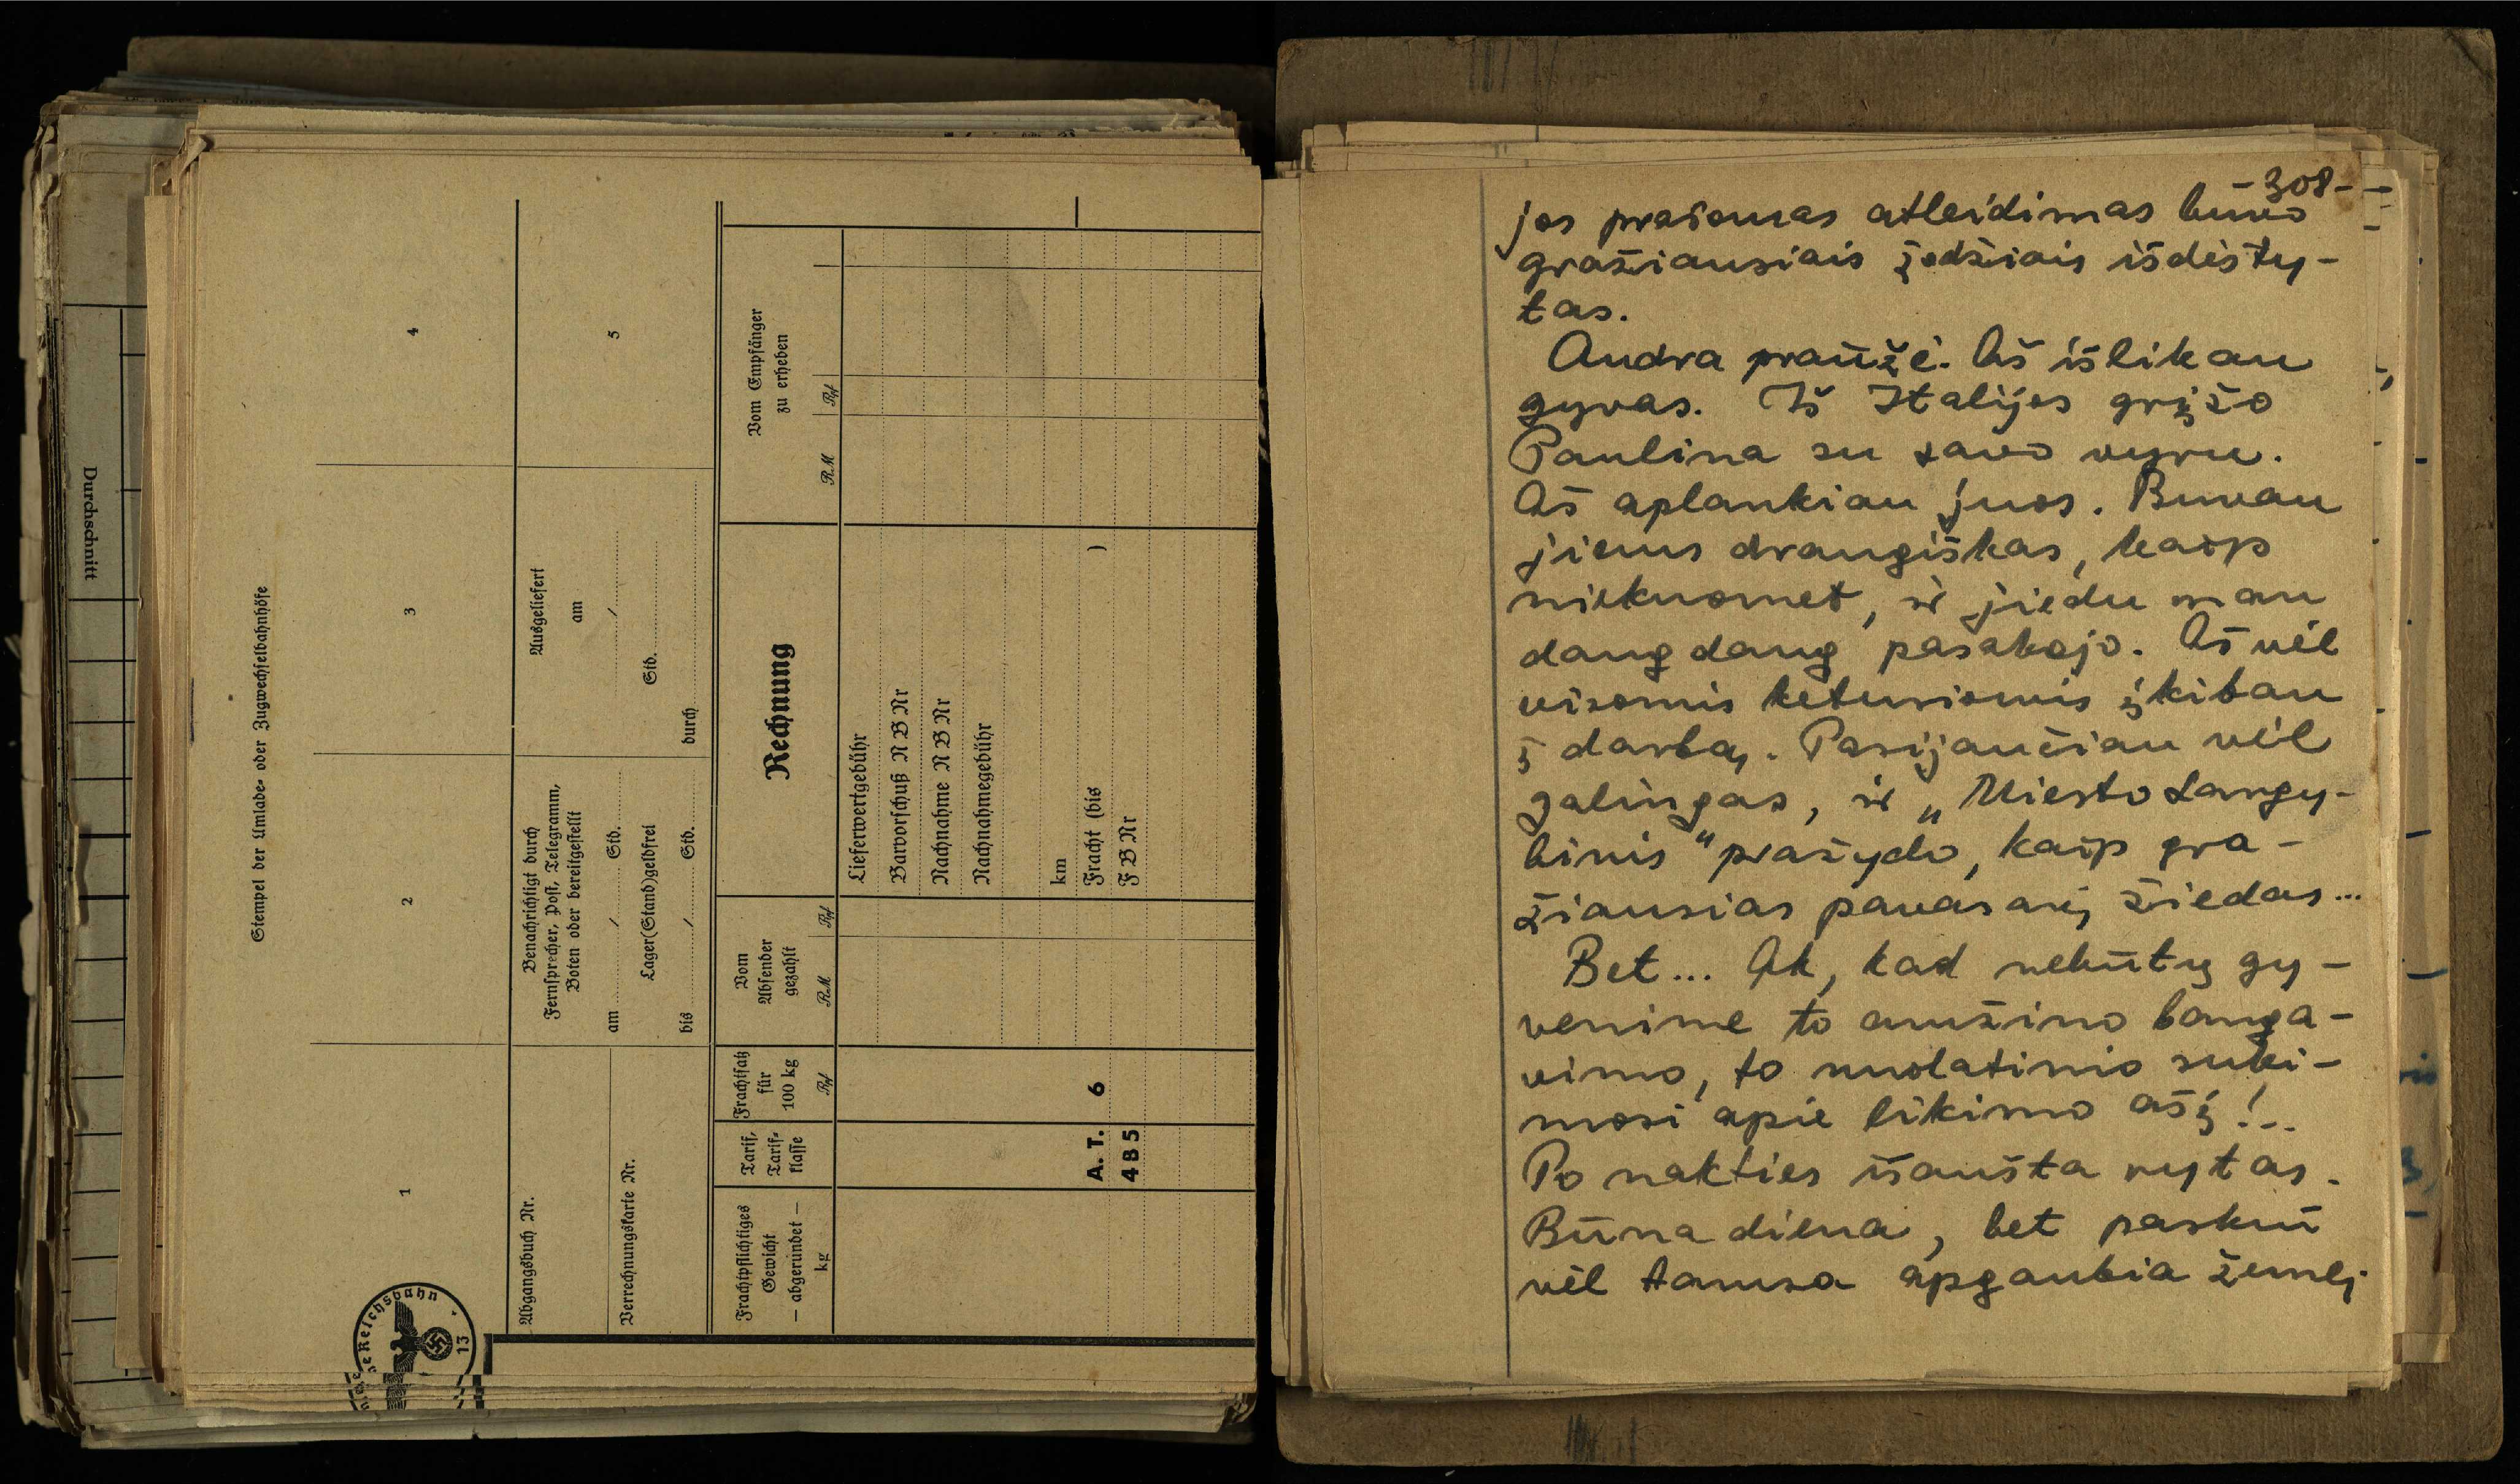 Durchschnitt
Stempel der Umlade- oder Zugwechselbahnhöfe
1
2
3
4
Abgangsbuch Nr.
Verrechnungskarte Nr.
Benachrichtigt durch
Fernsprecher, Post, Telegramm,
Boten oder bereitgestellt
am / Std.
Lager(Stand)geldfrei
bis / Std.
Ausgeliefert
am
/
Std.
durch
5
Frachtpflichtiges
Gewicht
— abgerundet —
kg
Tarif,
Tarif-
klasse
Frachtsatz
für
100 kg
Rpf
Vom
Absender
gezahlt
RM Rpf
Rechnung
Vom Empfänger
zu erheben
RM Rpf
Lieferwertgebühr
Barvorschuß N B Nr
Nachnahme N B Nr
Nachnahmegebühr
km
A. T. 6 Fracht (bis )
4 B 5 F B Nr
Reichsbahn
13
-308-
jos prašomas atleidimas buvo
gražiausiais žodžiais išdėsty-
tas.
Audra praūžė. Aš išlikau
gyvas. Iš Italijos grįžo
Paulina su savo vyru.
Aš aplankiau juos. Buvau
jiems draugiškas, kaip
niekuomet, ir jiedu man
daug daug pasakojo. Aš vėl
visomis keturiomis įkibau
į darbą. Pasijaučiau vėl
galingas, ir „Miesto Langy-
binis" pražydo, kaip gra-
žiausias pavasarį žiedas...
Bet... Ak, kad nebūtų gy-
venime to amžino banga-
vimo, to nuolatinio suki-
mosi apie likimo ašį!..
Po nakties išaušta rytas.
Būna diena, bet paskui
vėl tamsa apgaubia žemę